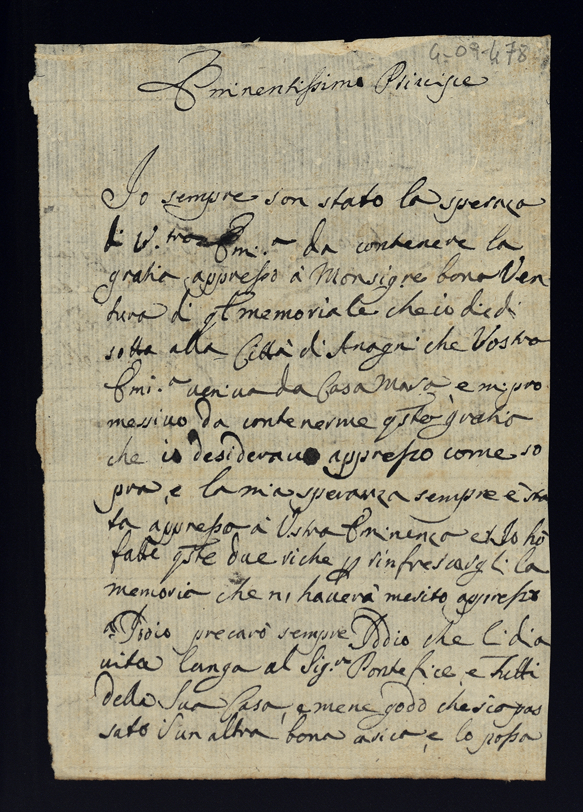 4-09-478
Eminentissimo Principe
Io sempre son stato la speraza
di V.tra Emi.a da contenere la
gratia appresso à Monsigre bona Ven
tura di qt memoriale che io diedi
sotta alla Città di Anagni che Vostra
Emi.a veniva da Casa Mara e mi pro
messivo da contenerme qsto gratia
che io desideravo appresso come so
pra, e la mia speranza sempre è sta
ta appresso à Vstra Eminenza et Io hò
fatte qste due riche p rinfrescargli la
memoria che ni haverà merito appresso
à Ddio precarò sempre Ddio che li dia
vita lunga al Sig.r Pontefice, e Tutti
della Sua Casa, e mene godo che sia pas
sato s'un altra bona, e lo possa